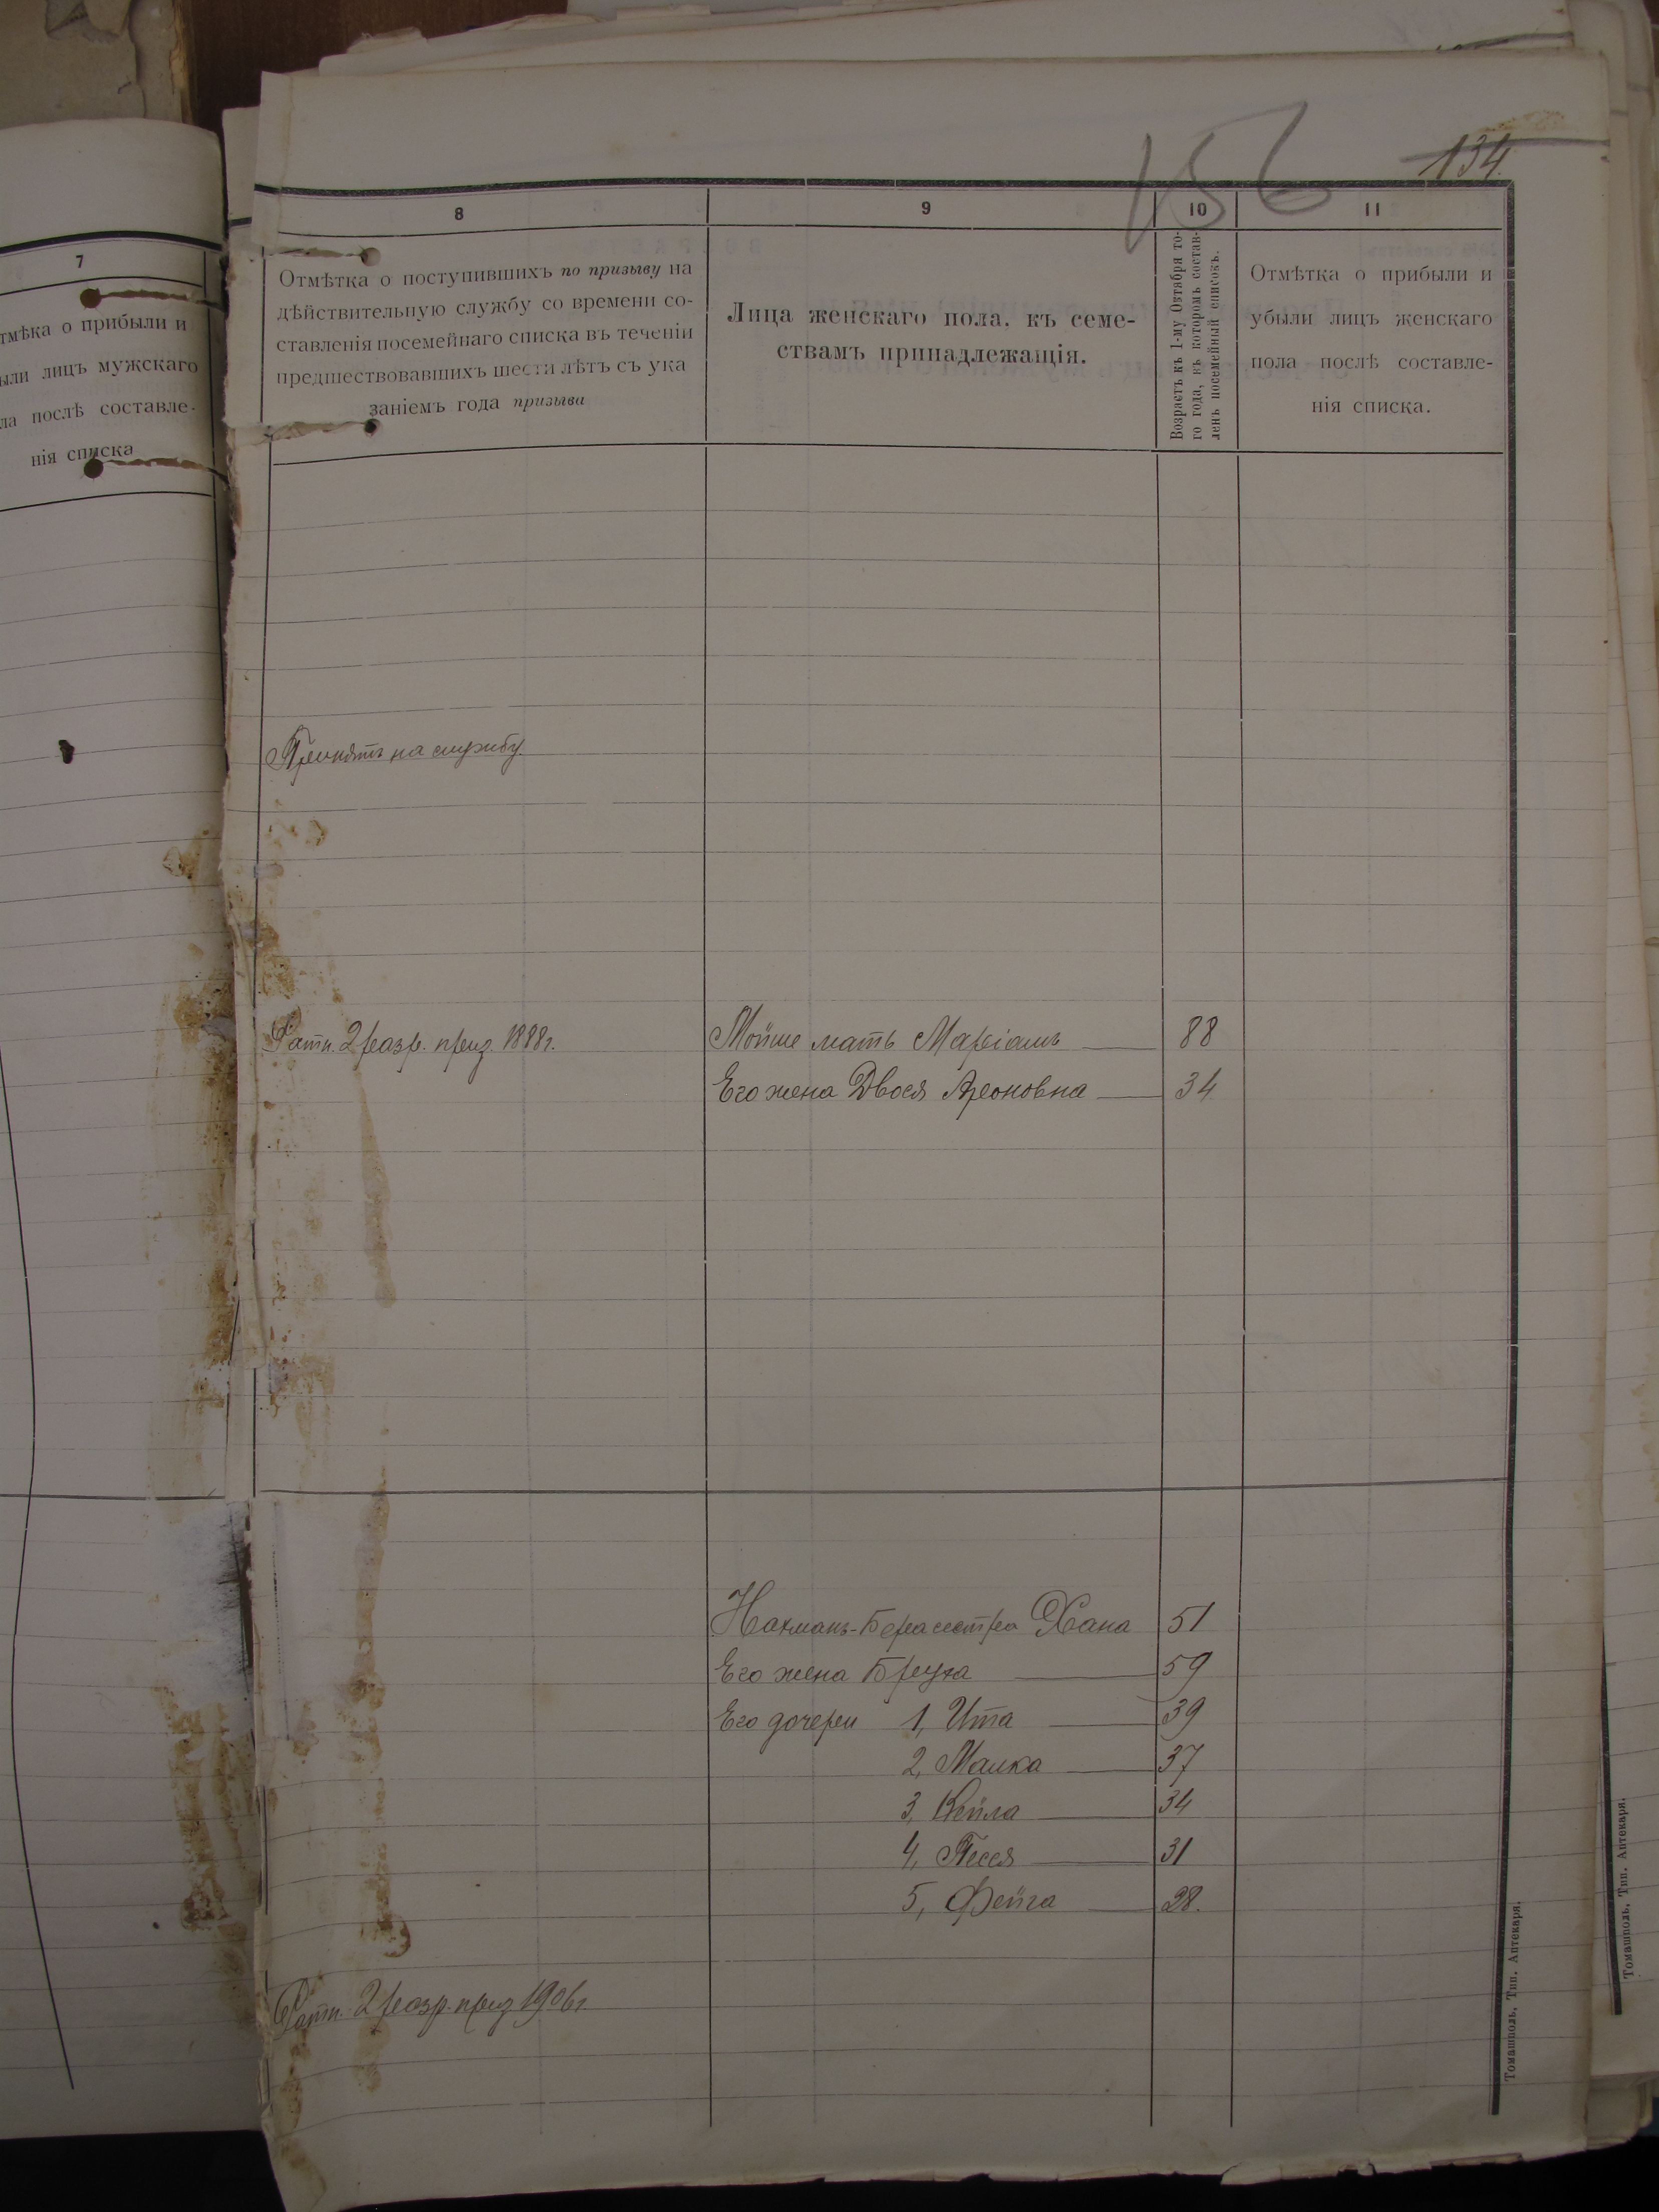 156
134.
7
тмѣка о прибыли и
ыли лицъ мужскаго
ла послѣ составле-
нія списка
8
9
10
11
Отмѣтка о поступившихъ по призыву на
дѣйствительную службу со времени со-
ставленія посемейнаго списка въ теченіи
предшествовавшихъ шести лѣтъ съ ука
заніемъ года призыва
Лица женскаго пола, къ семе-
ствамъ принадлежащія.
Возрастъ къ 1-му Октября то-
го года, къ которомъ состав-
ленъ посемейный списокъ.
Отмѣтка о прибыли и
убыли лицъ женскаго
пола послѣ составле-
нія списка.
Принятъ на службу.
Ратн. 2 разр. приз. 1888 г.
Мойше мать Маріамъ 88
Его жена Двося Ароновна 34
Нахманъ-Бера сестра Хана 51
Его жена Бруха 59
Его дочери 1, Ита 39
2, Малка 37
3, Кейла 34
4, Песся 31
5, Фейга 28.
Ратн. 2 разр. приз 1906 г
Томашполь, Тип. Аптекаря.
Томашполь, Тип. Аптекаря.